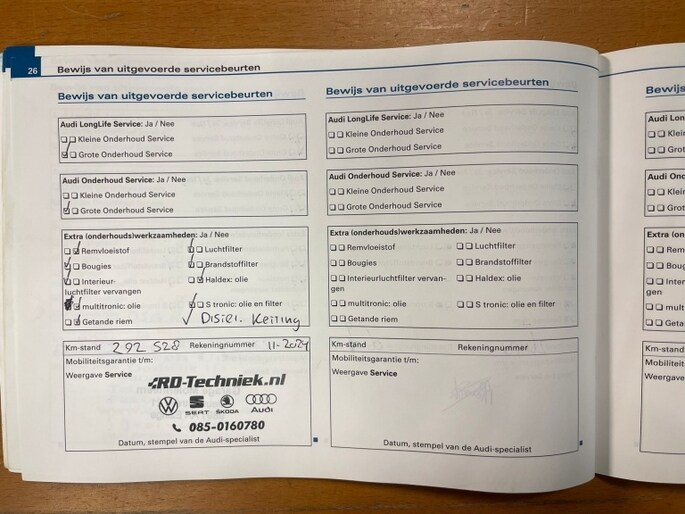 26 Bewijs van uitgevoerde servicebeurten
Bewijs van uitgevoerde servicebeurten
Audi LongLife Service: Ja / Nee
Kleine Onderhoud Service
Grote Onderhoud Service
Audi Onderhoud Service: Ja / Nee
Kleine Onderhoud Service
Grote Onderhoud Service
Extra (onderhouds)werkzaamheden: Ja / Nee
Remvloeistof Luchtfilter
Bougies Brandstoffilter
Interieur- Haldex: olie
luchtfilter vervangen
multitronic: olie S tronic: olie en filter
Getande riem
Km-stand 292 528 Rekeningnummer 11-2024
Mobiliteitsgarantie t/m:
Weergave Service
RD-Techniek.nl
SEAT ŠKODA Audi
085-0160780
Datum, stempel van de Audi-specialist
Bewijs van uitgevoerde servicebeurten
Audi LongLife Service: Ja / Nee
Kleine Onderhoud Service
Grote Onderhoud Service
Audi Onderhoud Service: Ja / Nee
Kleine Onderhoud Service
Grote Onderhoud Service
Extra (onderhouds)werkzaamheden: Ja / Nee
Remvloeistof Luchtfilter
Bougies Brandstoffilter
Interieurluchtfilter vervan- Haldex: olie
gen
multitronic: olie S tronic: olie en filter
Getande riem
Km-stand Rekeningnummer
Mobiliteitsgarantie t/m:
Weergave Service
Datum, stempel van de Audi-specialist
Bewijs
Audi Lon
Kleine
Grote
Audi Ond
Kleine
Grot
Extra (on
Rem
Boug
Inter
gen
mult
Geta
Km-stand
Mobiliteit
Weergave